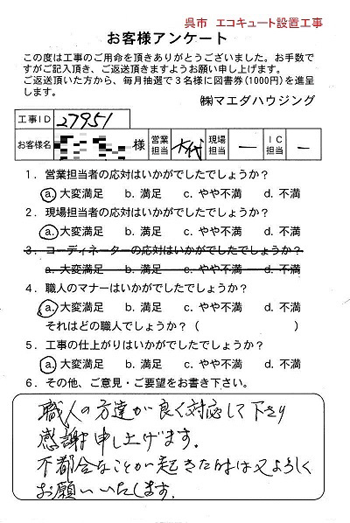 呉市 エコキュート設置工事
お客様アンケート
この度は工事のご用命を頂きありがとうございました。お手数で
すがご記入頂き、ご返送頂きますようお願い申し上げます。
ご返送頂いた方から、毎月抽選で３名様に図書券(1000円)を進呈
します。
㈱マエダハウジング
工事ＩＤ 27951
お客様名 様 営業担当 大代 現場担当 ー ＩＣ担当 ー
１．営業担当者の応対はいかがでしたでしょうか？
a. 大変満足 b. 満足 c. やや不満 d. 不満
２．現場担当者の応対はいかがでしたでしょうか？
a. 大変満足 b. 満足 c. やや不満 d. 不満
３．コーディネーターの応対はいかがでしたでしょうか？
a. 大変満足 b. 満足 c. やや不満 d. 不満
４．職人のマナーはいかがでしたでしょうか？
a. 大変満足 b. 満足 c. やや不満 d. 不満
それはどの職人でしょうか？（ ）
５．工事の仕上がりはいかがでしたでしょうか？
a. 大変満足 b. 満足 c. やや不満 d. 不満
６．その他、ご意見・ご要望をお書き下さい。
職人の方達が良く対応して下さり
感謝申し上げます。
不都合なことが起きた時は又よろしく
お願いいたします。